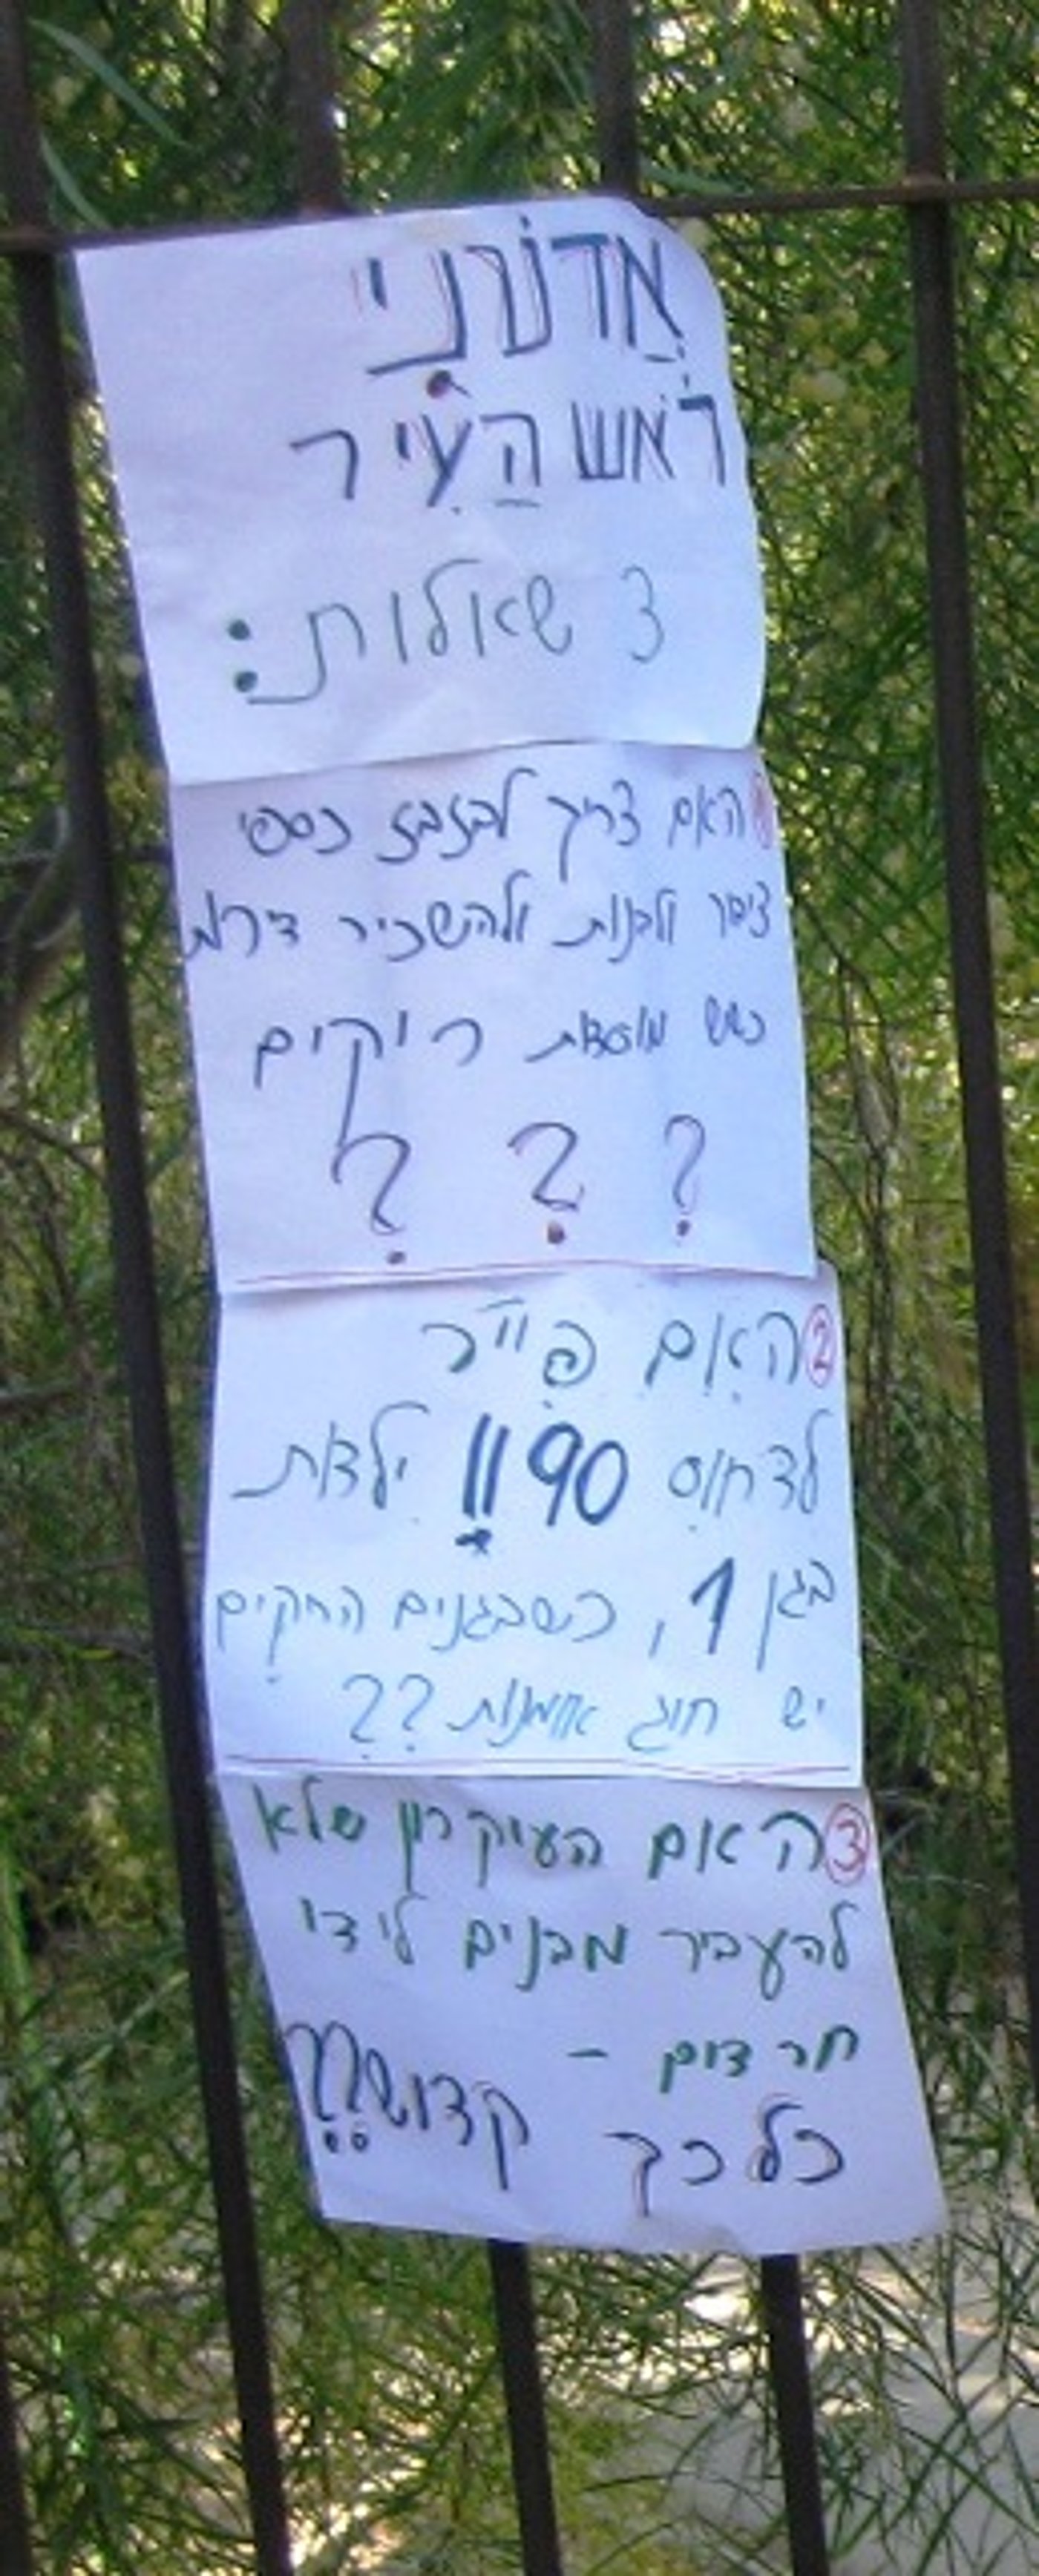 אֲדוֹנִי
רֹאשׁ הָעִיר
3 שאלות:
① האם צריך לבזבז כספי
ציבור ולבנות ולהשכיר דירות
כשיש מוסדות ריקים
? ? ?
② האם פייר
לדחוס 90 !! ילדות
בגן 1, כשבגנים הריקים
יש חוג אומנות ??
③ האם העיקרון שלא
להעביר מבנים לידי
חרדים –
כל כך קדוש??